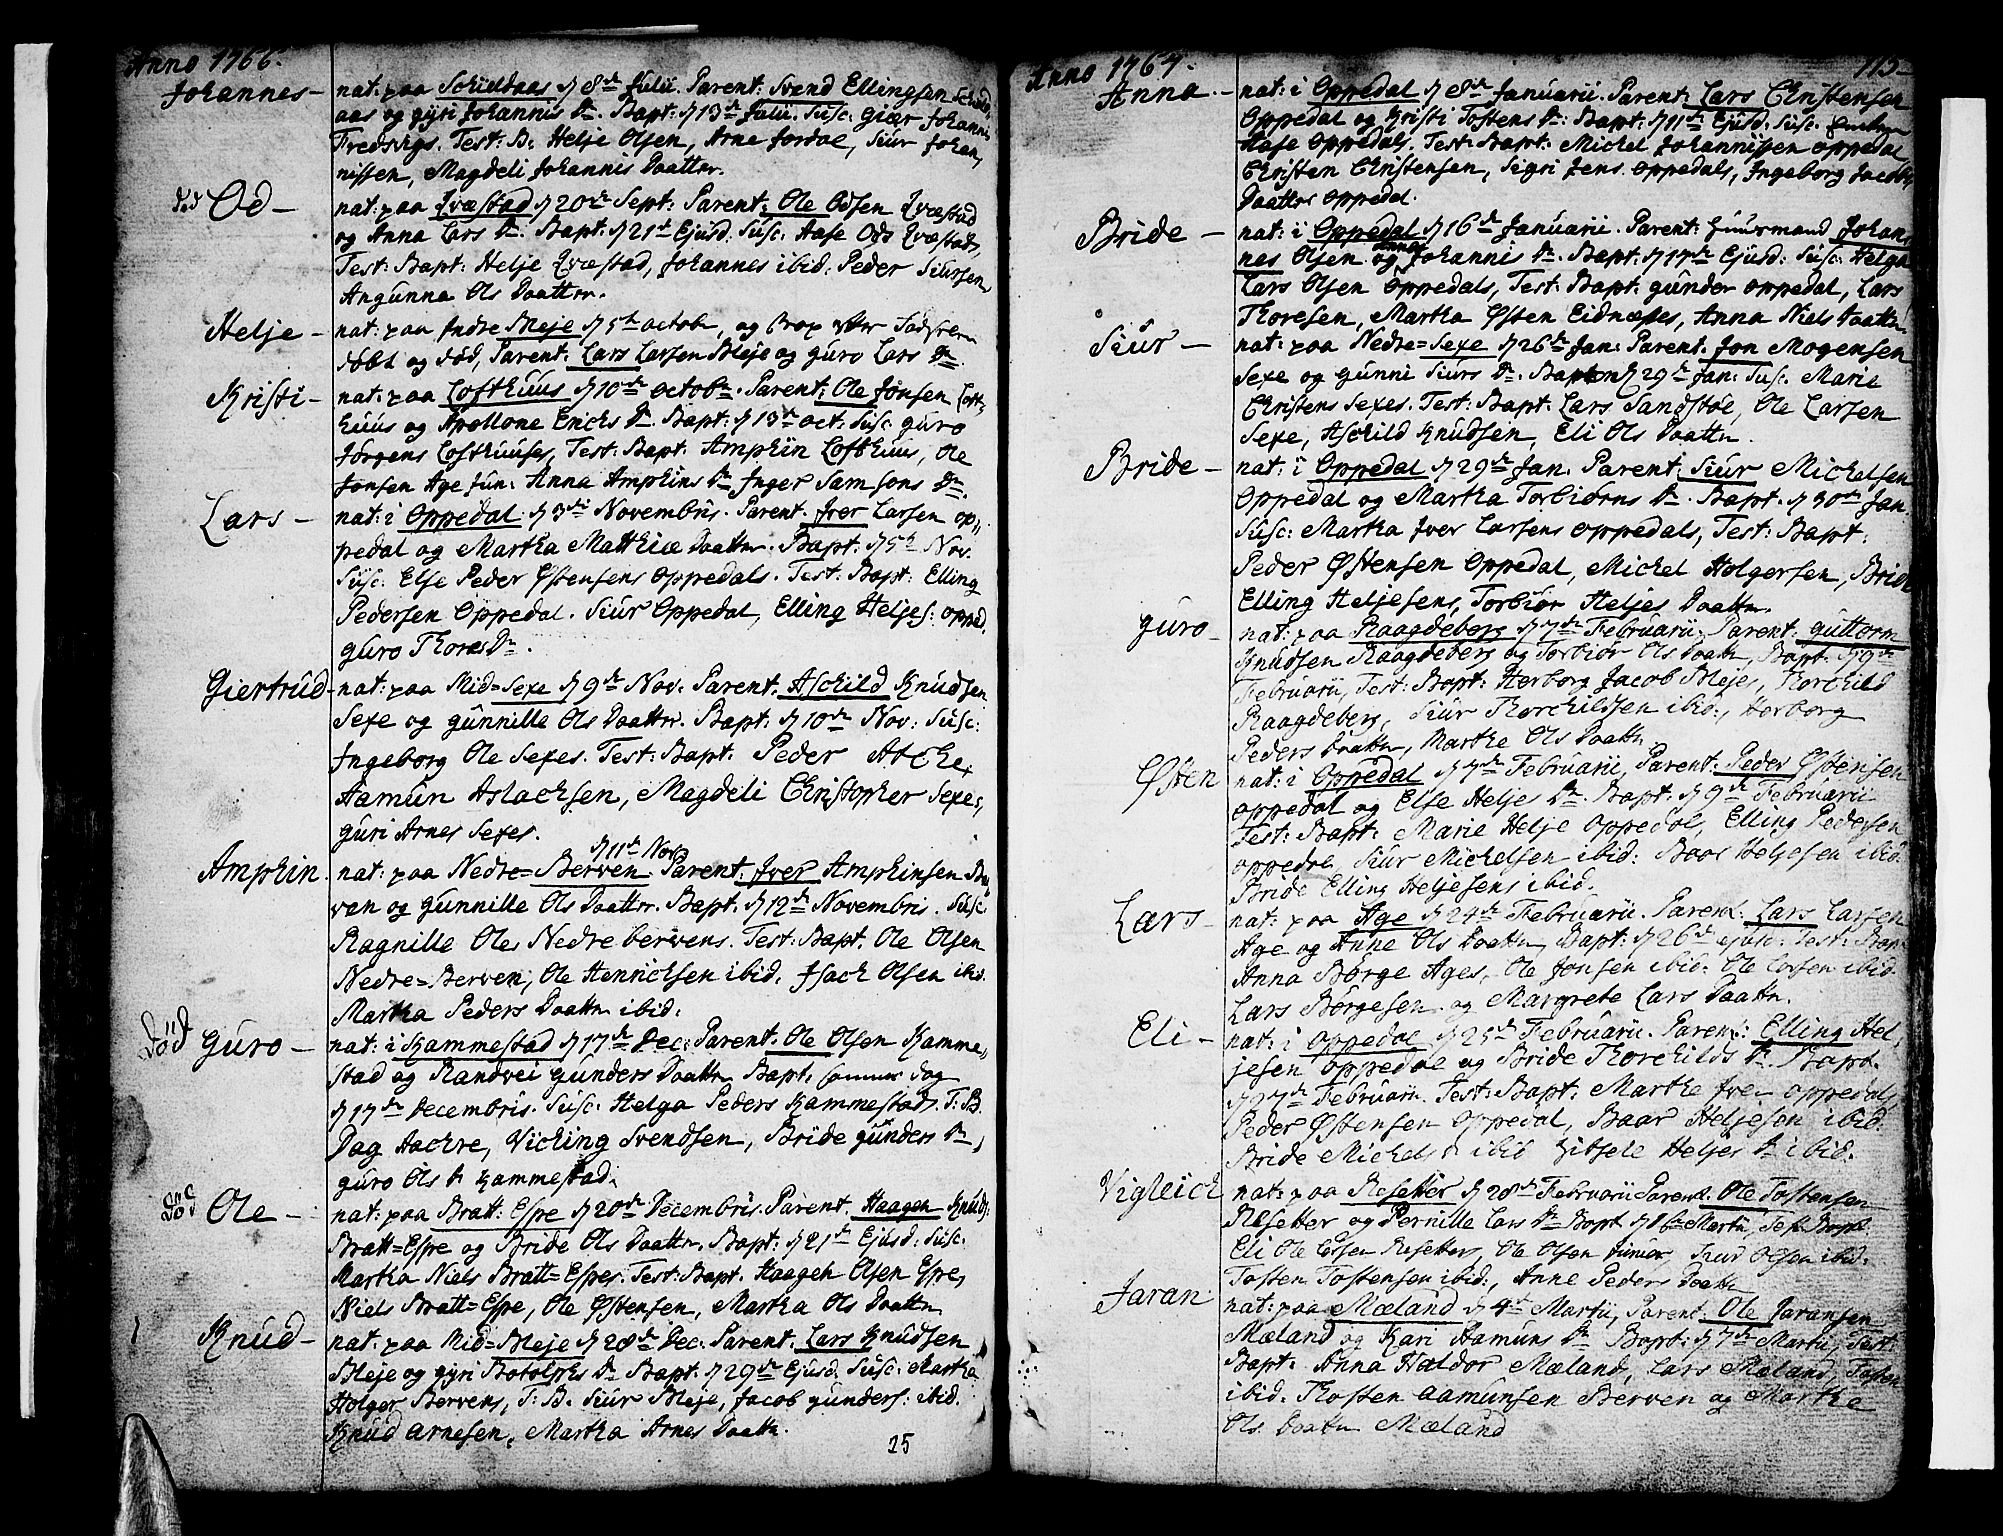 Anno 1766.
Johannes - nat: paa Schieldaas d 8de Julii. Parent: Svend Ellingsen Schield,,
aas og gyri Johannis Dr. Bapt: d 13de Julii. Susc: Giær Johannis
Test: B: Helje Olsen, Arne Jordal, Siur Johan,,
nissen, Magdeli Johannis Daatter.
død Od - nat: paa Qvæstad d 20de Sept: Parent: Ole Odsen Qvæstad
og Anna Lars Dr. Bapt: d 21t Ejusd: Susc: Aase Ods Qvæstad,
Test: Bapt: Helje Qvæstad, Johannes ibid: Peder Siursen,
Angunna Ols Daatter.
Helje - nat: paa Indre Bleje d 5te octob:, og
døbt og død, Parent: Lars Larsen Bleje og guro Lars Dr.
Kristi - nat: paa Lofthuus d 10de octobr. Parent: Ole Jonsen Loft,,
huus og Apollone Erichs Dr. Bapt: d 13de oct: Susc: guro
Jørgens Lofthuuses, Test: Bapt: Amphin Lofthuus, Ole
Jonsen Age jun: Anna Amphins Dr Inger Samsons Dr.
Lars - nat: i Oppedal d 3die Novembris. Parent: Iver Larsen op,,
pedal og Martha Matthiæ Daatter. Bapt: d 5te Nov.
Susc: Else Peder Østensens Oppedals. Test: Bapt: Elling
Pedersen Oppedal. Siur Oppedal, Elling Heljes: opped.
guro Thores Dr.
Giertrud - nat: paa Mid=Sexe d 9de Nov: Parent: Aschild Knudsen
Sexe og gunnille Ols Daatter. Bapt: d 10de Nov: Susc:
Ingeborg Ole Sexes. Test: Bapt: Peder Atche,
Aamun Aslachsen, Magdeli Christopher Sexes,
guri Arnes Sexes.
d 11te Nov:
Amphin. nat: paa Nedre=Berven Parent: Iver Amphinsen Ber,,
ven og gunnille Ols Daatter. Bapt: d 12de Novembris. Susc:
Ragnille Oles Nedre bervens. Test: Bapt. Ole Olsen
Nedre=Berven, Ole Henrichsen ibid. Isach Olsen ibid.
Martha Peders Daatter ibid:
Død Guro - nat: i Kammestad d 17de Dec: Parent: Ole Olsen Kamme,,
stad og Randvei gunders Daatter Bapt: samme dag
d 17de Decembris. Susc: Helga Peders Kammestads. T: B.
Dag Aachre, Viching Svendsen, Bride gunders Dr,
guro Ols Dr Kammestad.
Død Ole - nat: paa Bratt: Espe d 20de Decembris. Parent. Haagen Knuds:
Bratt=Espe og Bride Ols Daatter. Bapt: d 21de Ejusd: Susc:
Martha Niels Bratt=Espes. Test: Bapt. Haagen Olsen Espe,
Niels Bratt=Espe, Ole Østensen, Martha Ols Daatter
Knud - nat: paa Mid=Bleje d 28de Dec: Parent: Lars Knudsen
Bleje og gyri Botolphs Dr Bapt: d 29de Ejusd: Susc: Martha
Holger Bervens, T: B. Siur Bleje, Jacob gunders: ibid.
Knud Arnesen, Martha Arnes Daatter.
25
Anno 1767.
115
Anna - nat: i Oppedal d 8de Januarii. Parent: Lars Christensen
Oppedal og Kristi Tostens Dr: Bapt: d 11te Ejusd: Susc:
Aase Oppedals. Test: Bapt: Michel Johannissen oppedal,
Christen Christensen, Sigri Jens oppedals, Ingeborg Jacobs
Daatter oppedal.
Bride - nat: i Oppedal d 16de Januarii. Parent: Huusmand Johan,,
nes Olsen og Anna Johannis Dr. Bapt: d 17de Ejusd: Susc: Helga
Lars Olsen Oppedals, Test: Bapt: gunder oppedal, Lars
Thoresen, Martha Østen Eidnæses, Anna Niels Daatter
Siur - nat: paa Nedre=Sexe d 26de Jan: Parent: Jon Mogensen
Sexe og gunni Siurs Dr. Bapt: d 29de Jan: Susc. Marie
Christens Sexes. Test: Bapt. Lars Sandstøe, Ole Larsen
Sexe, Aschild Knudsen, Eli Ols Daatter.
Bride - nat: i Oppedal d 29de Jan: Parent: Siur Michelsen
Oppedal og Martha Torbiørns Dr. Bapt: d 30te Jan
Susc: Martha Iver Larsens oppedals, Test: Bapt:
Peder Østensen Oppedal, Michel Holgersen, Bride
Elling Heljesens, Torbiør Heljes Daatter.
guro - nat: paa Raagdeberg d 7de Februarii, Parent: guttorm
Knudsen Raagdeberg og Torbiør Ols Daatter, Bapt: d 9de
Februarii, Test: Bapt: Herborg Jacob Blejes, Thorchild
Raagdeberg, Siur Thorchildsen ibid:, Herborg
Peders Daatter, Martha Ols Daatter.
Østen nat: i Oppedal d 7de Februarii, Parent: Peder Østensen
oppedal og Else Helje Dr. Bapt: d 9de Februarii
Test: Bapt: Marie Helje oppedal, Elling Pedersen
oppedal, Siur Michelsen ibid: Baar Heljesen ibid:
Bride Elling Heljesens ibid.
Lars - nat: paa Age d 24de Februarii. Parent: Lars Larsen
Age og Anne Ols Daatter, Bapt: d 26de ejusd: Test: Bapt
Anna Børge Ages, Ole Jonsen ibid: Ole Larsen ibid.
Lars Børgesen og Margrete Lars Daatter.
Eli - nat: i oppedal d 25de Februarii. Parent: Elling Hel,,
jesen oppedal og Bride Thorchilds Dr. Bapt.
d 27de Februarii. Test: Bapt: Martha Iver oppedals,
Peder Østensen Oppedal, Baar Heljesen ibid:
Bride Michels Dr ibid Zitsele Heljes Dr ibid.
Vigleich nat: paa Resetter d 28de Februarii Parent. Ole Tostensen
Resetter og Pernille Lars Dr Bapt d 1te Martii, Test Bapt.
Eli Ole Larsen Resetters, Ole Olsen junior, Siur Olsen ibid.
Tosten Tostensen ibid:, Anne Peders Daatter
Jaran nat: paa Mæland d 4de Martii, Parent: Ole Jaransen
Mæland og Kari Aamuns Dr Bapt: d 7de Martii, Test:
Bapt: Anna Haldor Mæland, Lars Mæland, Tosten
ibid. Thosten Aamunsen Berven og Martha
Ols Daatter Mæland